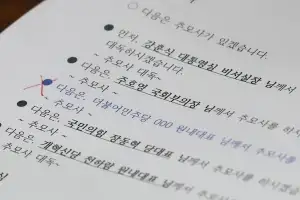 ● 다음은 추모사가 있겠습니다.
● 먼저, 강훈식 대통령실 비서실장 님께서
대독하시겠습니다.
- 추모사 대독-
● 다음은, 주호영 국회부의장 님께서 추모사를 하시
- 추모사 -
● 다음은, 더불어민주당 000 원내대표 님께서 추모사를
- 추모사 -
● 다음은, 국민의힘 장동혁 당대표 님께서 추모사를 하시겠
- 추모사 -
● 다음은, 개혁신당 천하람 원내대표 님께서
추모사 대독-